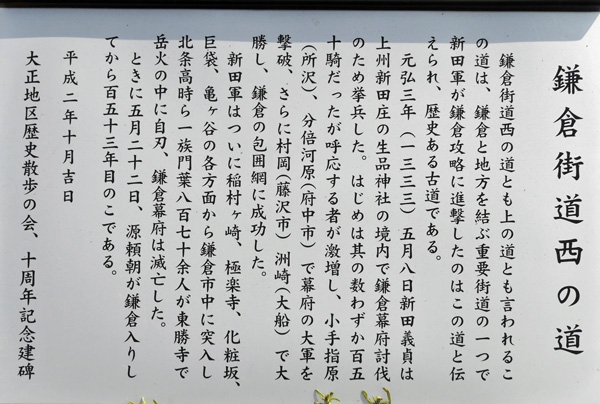 鎌倉街道西の道
鎌倉街道西の道とも上の道とも言われるこ
の道は、鎌倉と地方を結ぶ重要街道の一つで
新田軍が鎌倉攻略に進撃したのはこの道と伝
えられ、歴史ある古道である。
元弘三年（一三三三）五月八日新田義貞は
上州新田庄の生品神社の境内で鎌倉幕府討伐
のため挙兵した。はじめは其の数わずか百五
十騎だったが呼応する者が激増し、小手指原
（所沢）、分倍河原（府中市）で幕府の大軍を
撃破、さらに村岡（藤沢市）洲崎（大船）で大
勝し、鎌倉の包囲網に成功した。
新田軍はついに稲村ヶ崎、極楽寺、化粧坂、
巨袋、亀ヶ谷の各方面から鎌倉市中に突入し
北条高時ら一族門葉八百七十余人が東勝寺で
岳火の中に自刃、鎌倉幕府は滅亡した。
ときに五月二十二日、源頼朝が鎌倉入りし
てから百五十三年目のことである。
平成二年十月吉日
大正地区歴史散歩の会、十周年記念建碑